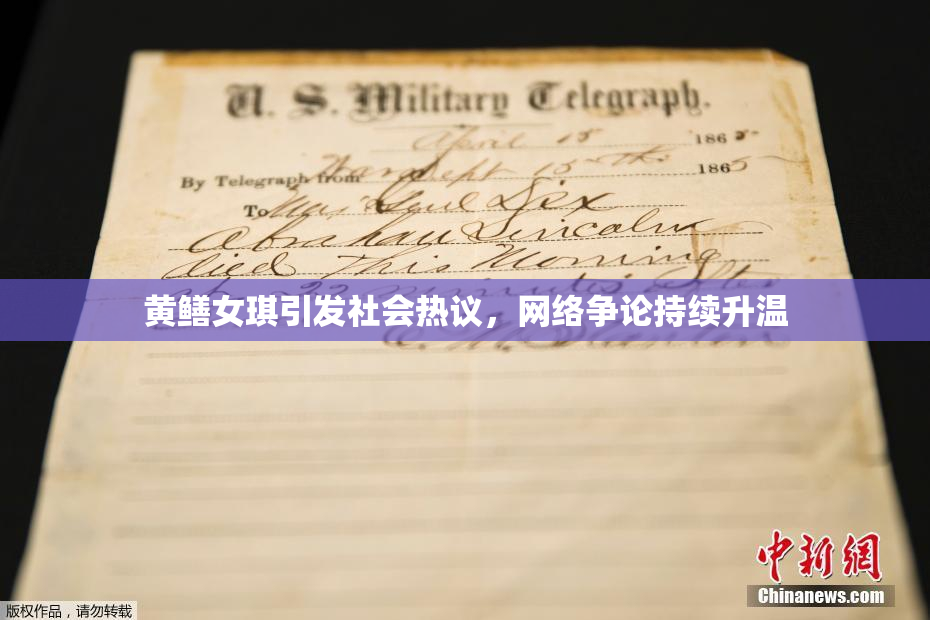 U. S. Military Telegraph.
April 15 1865
By Telegraph from War Dept 15th 1865
To Maj Genl Dix
Abraham Lincoln
died This Morning
22 minutes after
黄鳝女琪引发社会热议，网络争论持续升温
E. M. Stanton
中新網
Chinanews.com
版权作品，请勿转载